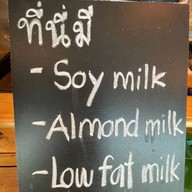 ที่นี่มี
- Soy milk
- Almond milk
- Low fat milk